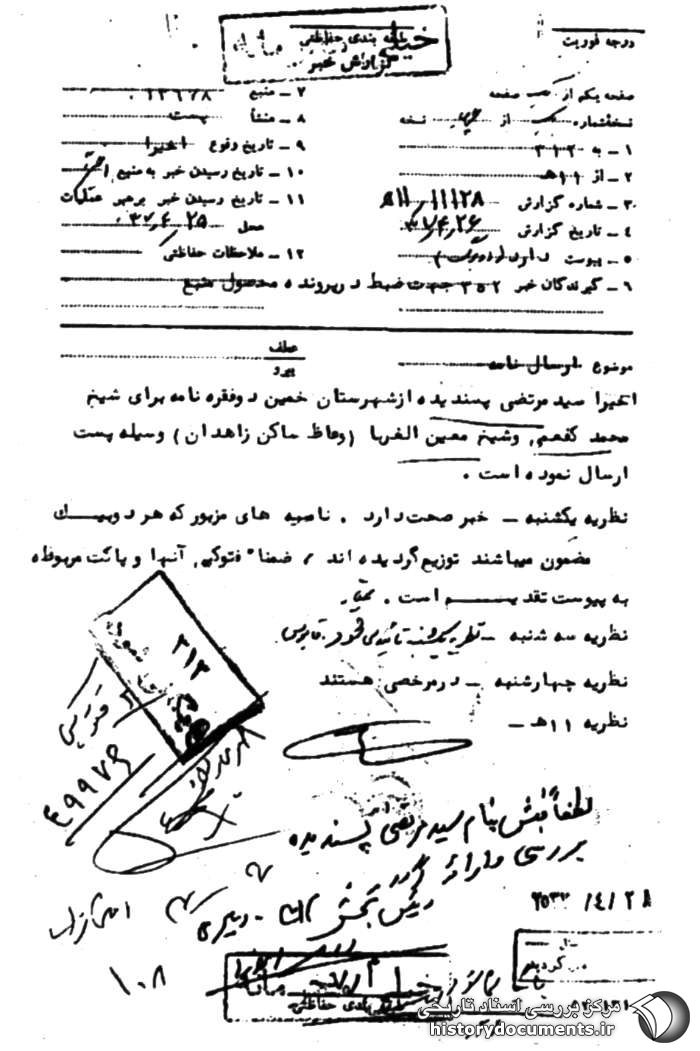 درجه فوریت
طبقه بندی حفاظتی
خیلی محرمانه
گزارش خبر
صفحه یکم از یک صفحه
نسخه شماره یک از چهار نسخه
۱ – به ۳۱۲
۲ – از ۱۱هـ
۳ – شماره گزارش ۱۱۱۲۸/۱۱هـ
٤ – تاریخ گزارش ۳۷/۴/۲۶
۵ – پیوست دارد
٦ – گیرندگان خبر ۳۵۲ جهت ضبط در پرونده محصول منبع
۷ – منبع ۱۲٦۷۸
۸ – منشأ پست
۹ – تاریخ وقوع اخیرا
۱۰ – تاریخ رسیدن خبر به منبع
۱۱ – تاریخ رسیدن خبر برهبر عملیات
محل ۳۷/۴/۲۵
۱۲ – ملاحظات حفاظتی
موضوع ارسال نامه
عطف
پیرو
اخیرا سید مرتضی پسندیده از شهرستان خمین دو فقره نامه برای شیخ
محمد کفعمی وشیخ معین الغربا (وعاظ ساکن زاهدان) وسیله پست
ارسال نموده است .
نظریه یکشنبه – خبر صحت دارد . نامه های مزبور که هر دو بیک
مضمون میباشند توزیع گردیده اند ، ضمنا" فتوکپی آنها و پاکت مربوطه
به پیوست تقدیم است .
نظریه سه شنبه – نظریه یکشنبه تائید می شود.
نظریه چهارشنبه – در مرخصی هستند
نظریه ۱۱هـ –
۳۱۲
٤۹۹۷۶
لطفاً فیش بنام سید مرتضی پسندیده
بررسی و ارائه گردد
رئیس بخش
۲۵۳۷/٤/۲۸
۱۰۸
خیلی محرمانه
طبقه بندی حفاظتی
مرکز بررسی اسناد تاریخی
historydocuments.ir